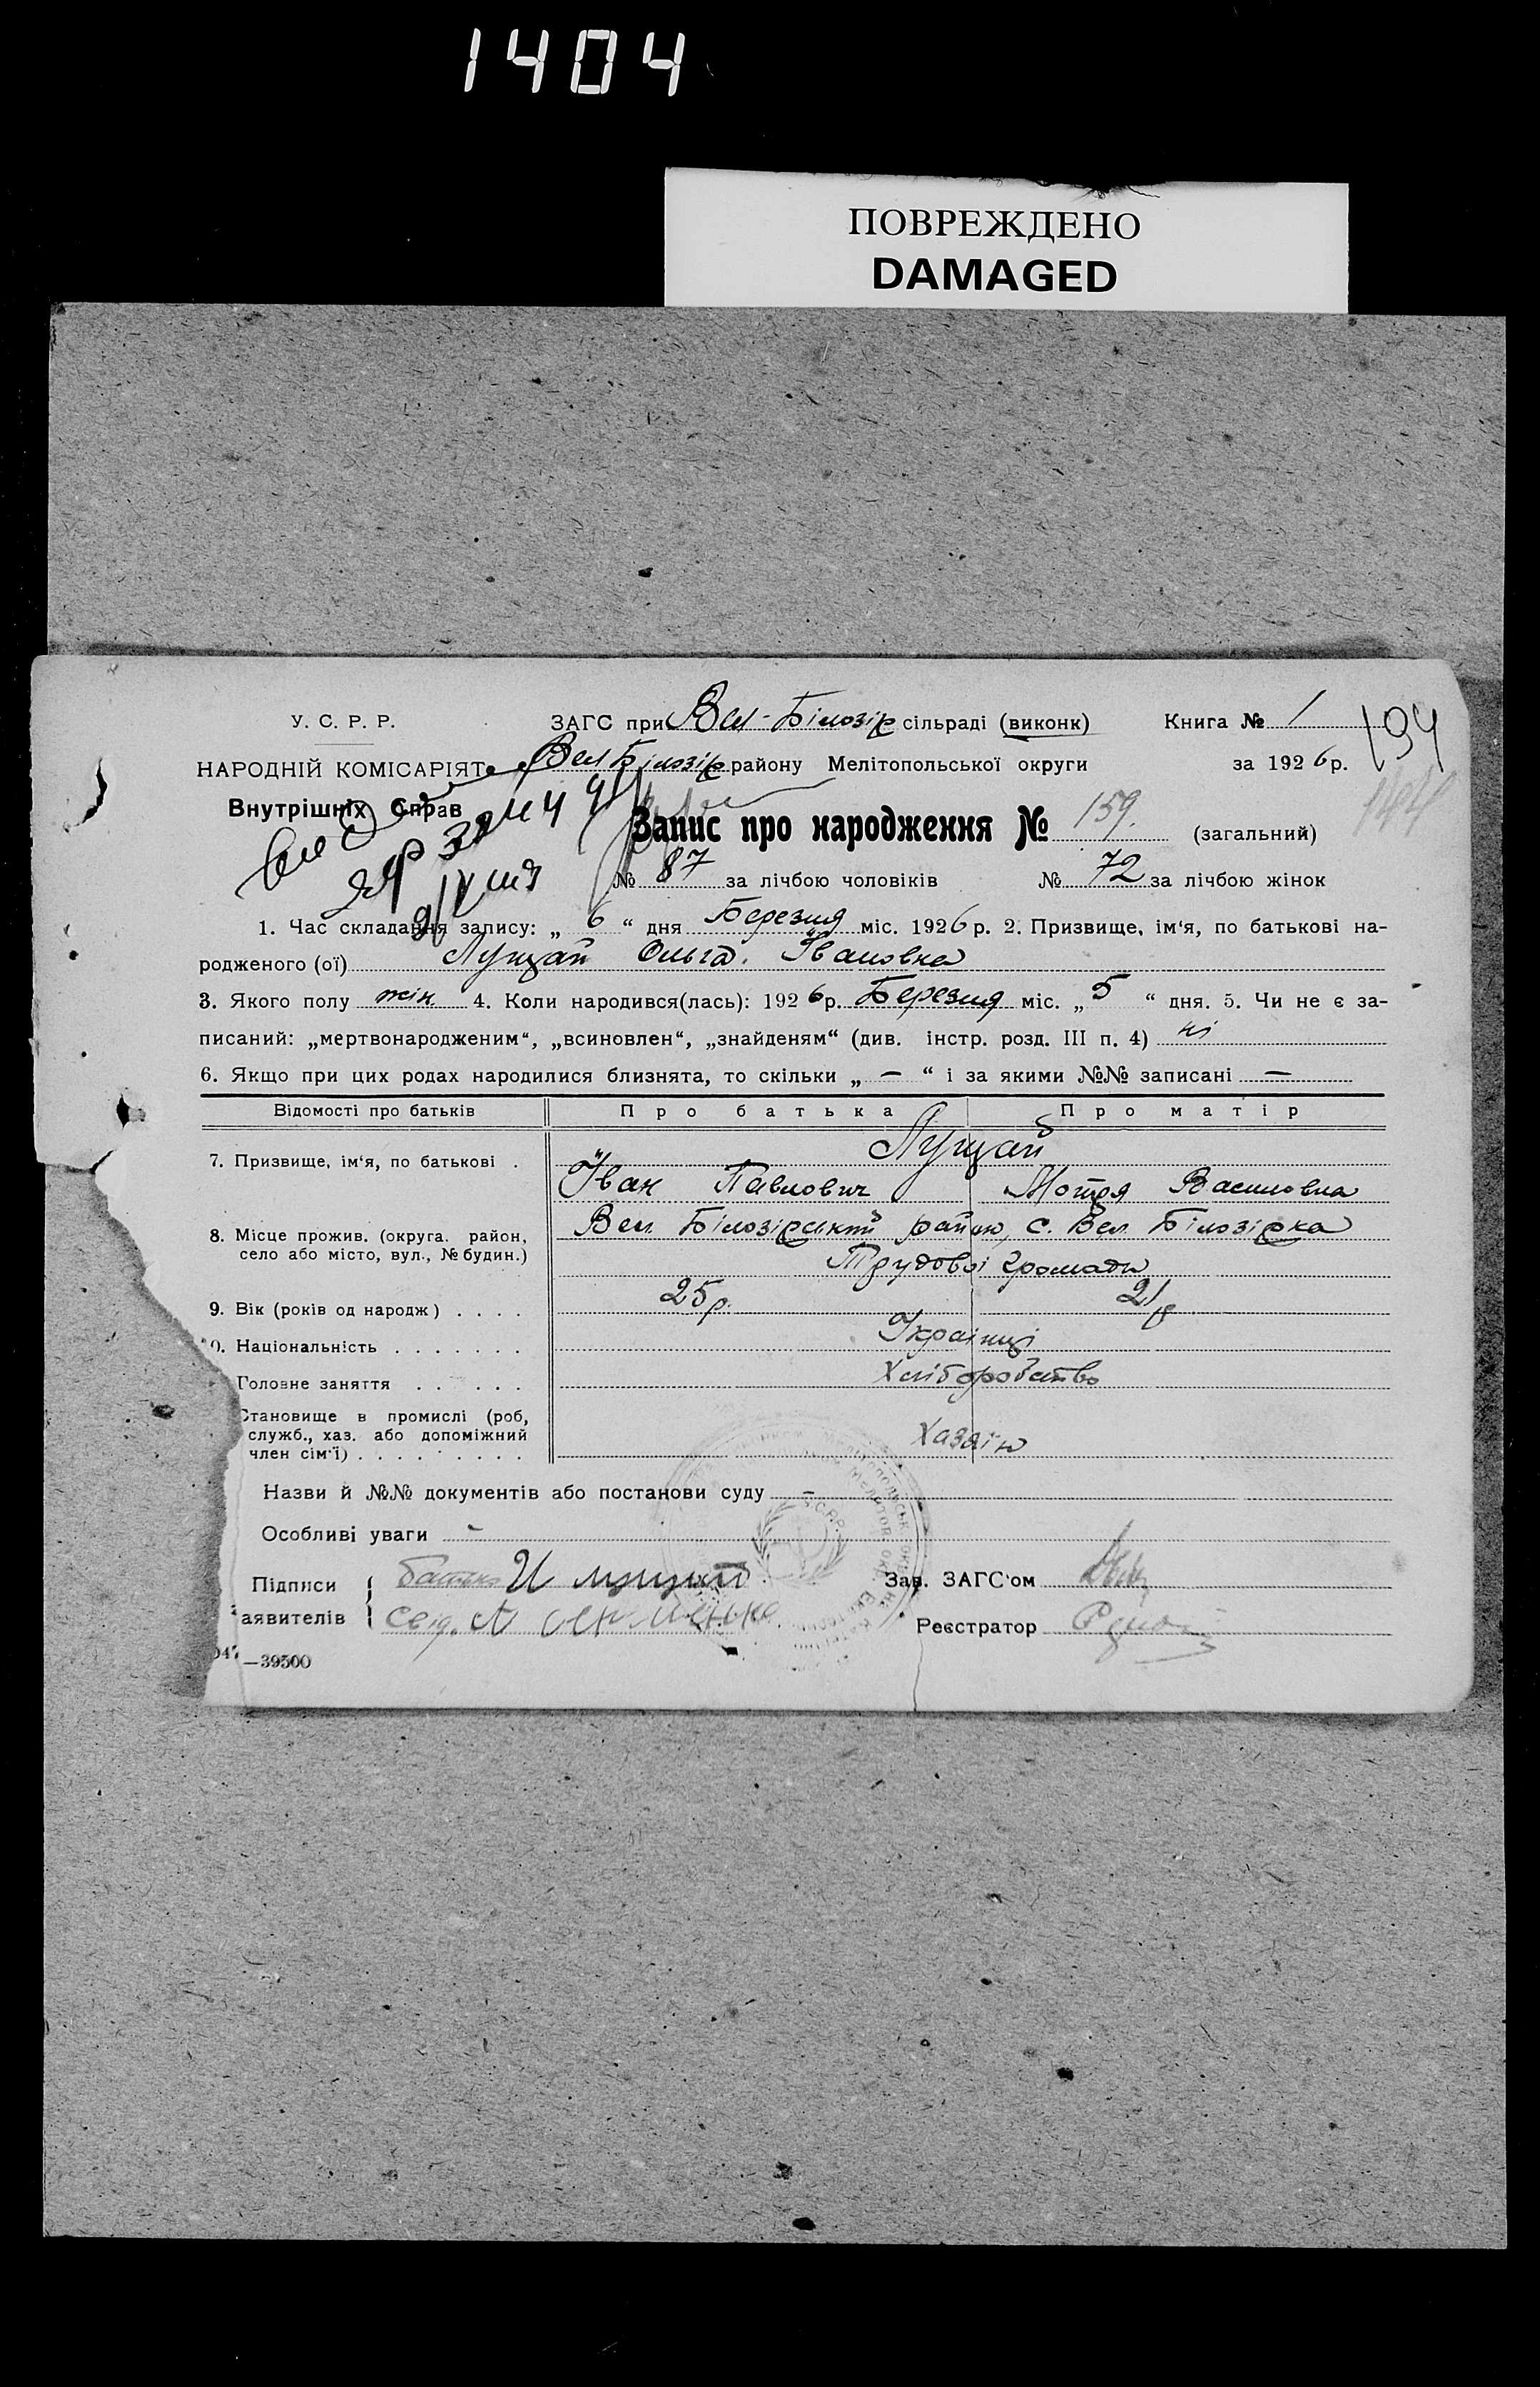 1404
ПОВРЕЖДЕНО
DAMAGED
У. С. Р. Р.
ЗАГС при Вел-Білозір сільраді (виконк)
Книга № 1
194
144
НАРОДНІЙ КОМІСАРІЯТ
Вел Білозір району Мелітопольської округи
за 1926 р.
Внутрішніх Справ
Запис про народження № 159. (загальний)
№ 87 за лічбою чоловіків № 72 за лічбою жінок
1. Час складання запису: „ 6 “ дня Березня міс. 1926 р. 2. Призвище, ім‘я, по батькові на-
родженого (ої) Лущай Ольга. Івановна
3. Якого полу жін. 4. Коли народився(лась): 1926 р. Березня міс. „ 5 “ дня. 5. Чи не є за-
писаний: „мертвонародженим“, „всиновлен“, „знайденям“ (див. інстр. розд. III п. 4) ні
6. Якщо при цих родах народилися близнята, то скільки „ — “ і за якими №№ записані —
Відомості про батьків Про батька Про матір
Лущай
7. Призвище, ім‘я, по батькові .
Іван Павлович Мотря Василовна
8. Місце прожив. (округа. район, село або місто, вул., № будин.)
Вел. Білозірський район, с. Вел. Білозірка
Трудової громади
9. Вік (років од народж) . . . . 25 р. 21 р
0. Національність . . . . . . . Українці
Головне заняття . . . . . . Хліборобство
Становище в промислі (роб,
служб., хаз. або допоміжний
член сім‘ї) . . . . . . . . . Хазяїн
Назви й №№ документів або постанови суду –
Особливі уваги -
Підписи батько И Лущай
Зав. ЗАГС‘ом
аявителів свід.
Реєстратор
047—39500